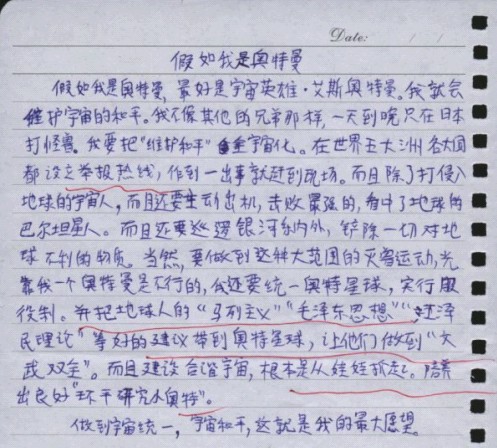 Date: / /
假如我是奥特曼
假如我是奥特曼,最好是宇宙英雄·艾斯奥特曼。我就会
维护宇宙的和平。我不像其他的兄弟那样,一天到晚只在日本
打怪兽。我要把"维护和平"宇宙化。在世界五大洲各大国
都设立举报热线,作到一出事就赶到现场。而且除了打侵入
地球的宇宙人,而且还要主动出机,击败最强的,看中了地球的
巴尔坦星人。而且还要巡逻银河系内外,铲除一切对地
球不利的物质。当然,要做到这种大范围的灭害运动,光
靠我一个奥特曼是不行的,我还要统一奥特星球,实行服
役制。并把地球人的"马列主义""毛泽东思想""江泽
民理论"等好的建议带到奥特星球,让他们做到"文
武双全"。而且建设合谐宇宙,根本是从娃娃抓起。培养
出良好"环干研究小奥特"。
做到宇宙统一,宇宙和平,这就是我的最大愿望。